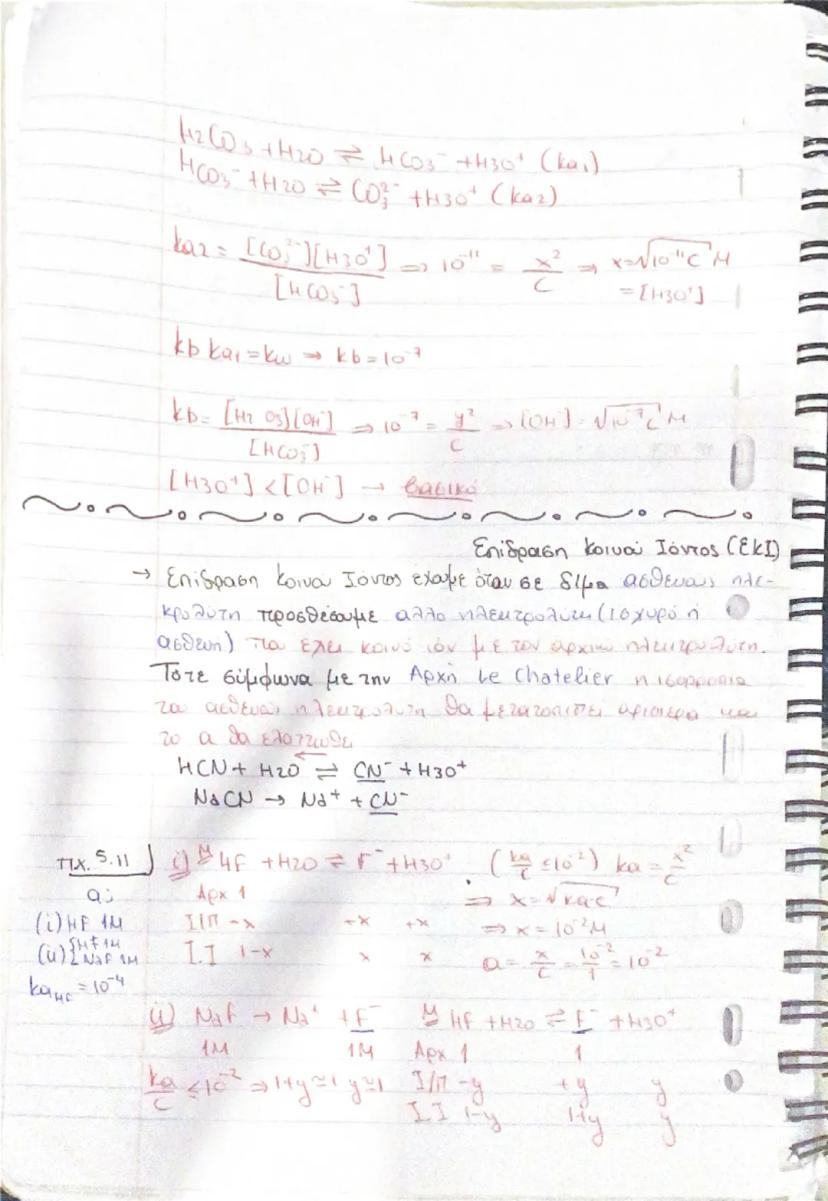 H2CO3 + H2O ⇌ HCO3⁻ + H3O⁺ (ka₁)
HCO3⁻ + H2O ⇌ CO3²⁻ + H3O⁺ (ka2)
ka2 = [CO3²⁻][H3O⁺] / [HCO3⁻] ⇒ 10⁻¹¹ = x²/C ⇒ x = √10⁻¹¹C M
= [H3O⁺]
kb ka₁ = kw ⇒ kb = 10⁻⁷
kb = [H2 O3][OH⁻] / [HCO3⁻] ⇒ 10⁻⁷ = y²/C ⇒ [OH⁻] = √10⁻⁷C M
[H3O⁺] < [OH⁻] → βασικό
Επίδραση Κοινού Ιόντος (ΕΚΙ)
→ Επίδραση Κοινού Ιόντος έχουμε όταν σε δ/μα ασθενούς ηλε-
κρολύτη προσθέσουμε αλλο ηλεκτρολύτη (ισχυρό ή
ασθενή) που έχει κοινό ιόν με τον αρχικό ηλεκτρολύτη.
Τότε σύμφωνα με την Αρχή Le Chatelier η ισορροπία
του ασθενούς ηλεκτρολύτη θα μετατοπιστεί αριστερά και
το α θα ελαττωθεί
HCN + H2O ⇌ CN⁻ + H3O⁺
NaCN → Na⁺ + CN⁻
πχ. 5.11 i) M HF + H2O ⇌ F⁻ + H3O⁺ (ka/C ≤ 10⁻²) ka = x²/C
α; Αρχ 1 ⇒ x = √ka·C
(i) HF 1M Ι/Π -x +x +x ⇒ x = 10⁻² M
(ii) { HF 1M NaF 1M Ι.Ι 1-x x x α = x/C = 10⁻²/1 = 10⁻²
ka HF = 10⁻⁴
ii) NaF → Na⁺ + F⁻ M HF + H2O ⇌ F⁻ + H3O⁺
1M 1M Αρχ 1 1
ka/C ≤ 10⁻² ⇒ 1+y ≃ 1-y ≃ 1 Ι/Π -y +y y
Ι.Ι 1-y 1+y y